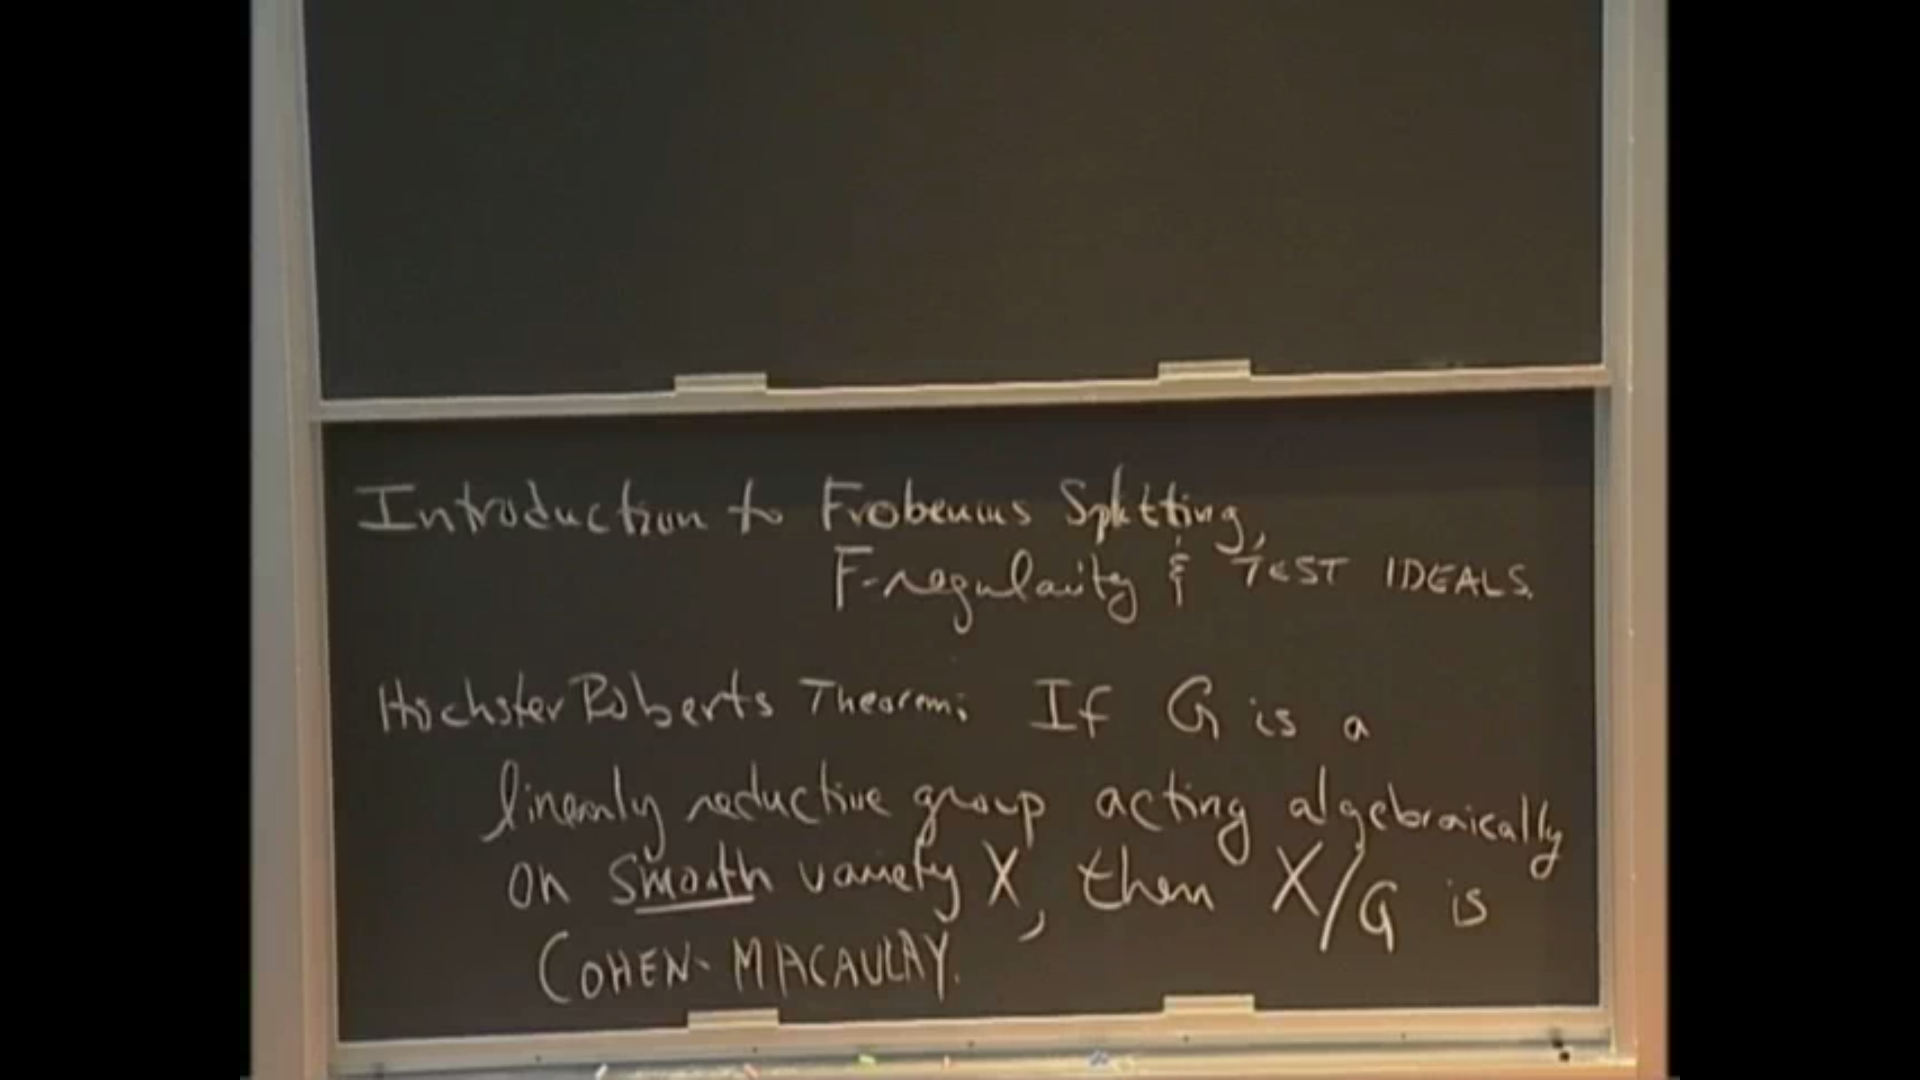 Introduction to Frobenius Splitting,
F-regularity & TEST IDEALS.
Hochster Roberts Theorem: If G is a
linearly reductive group acting algebraically
on smooth variety X, then X/G is
COHEN-MACAULAY.